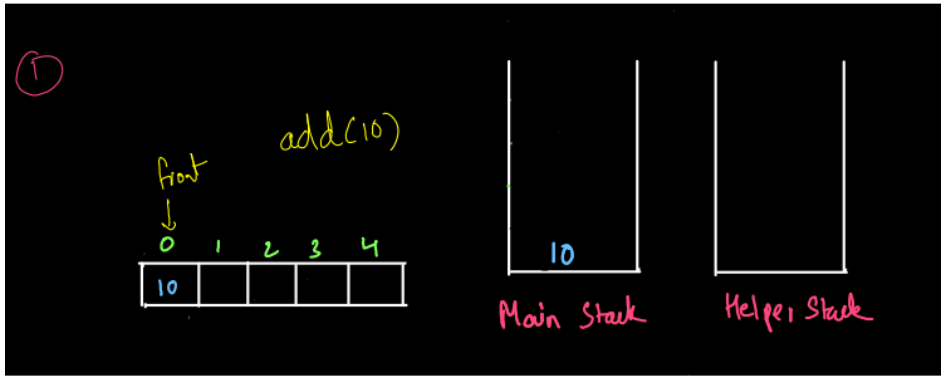 1
add(10)
front
0 1 2 3 4
10
10
Main Stack
Helper Stack